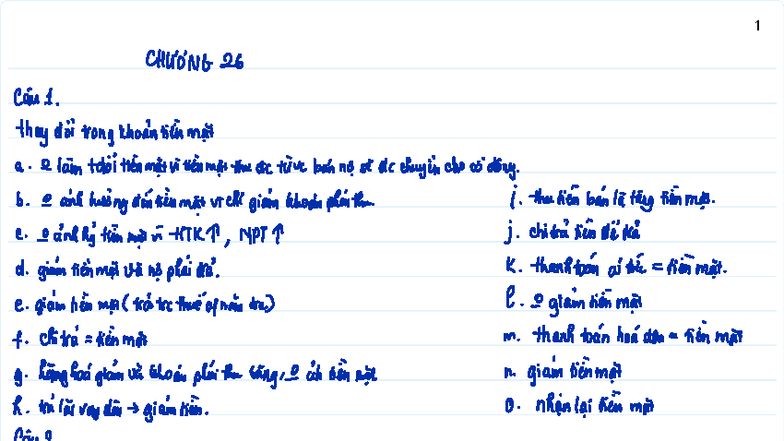 1
CHƯƠNG 26
Câu 1.
thay đổi trong khoản tiền mặt
a. 0 làm t.đổi tiền mặt vì tiền mặt thu đc từ vc bán nợ sẽ đc chuyển cho cổ đông.
b. 0 ảnh hưởng đến tiền mặt vì chỉ giảm khoản phải thu.
c. 0 ảnh hg tiền mặt vì HTK↑, NPT↑
d. giảm tiền mặt và nợ phải trả.
e. giảm tiền mặt (trả trc thuế of năm)
f. chi trả = tiền mặt
g. hàng hoá giảm và khoản phải thu tăng, 0 ảh tiền mặt
h. trả lãi vay dài → giảm tiền.
i. thu tiền bán lẻ tăng tiền mặt.
j. chi trả tiền để
k. thanh toán = tiền mặt.
l. 0 giảm tiền mặt
m. thanh toán hoá đơn = tiền mặt
n. giảm tiền mặt
o. nhận lại tiền mặt